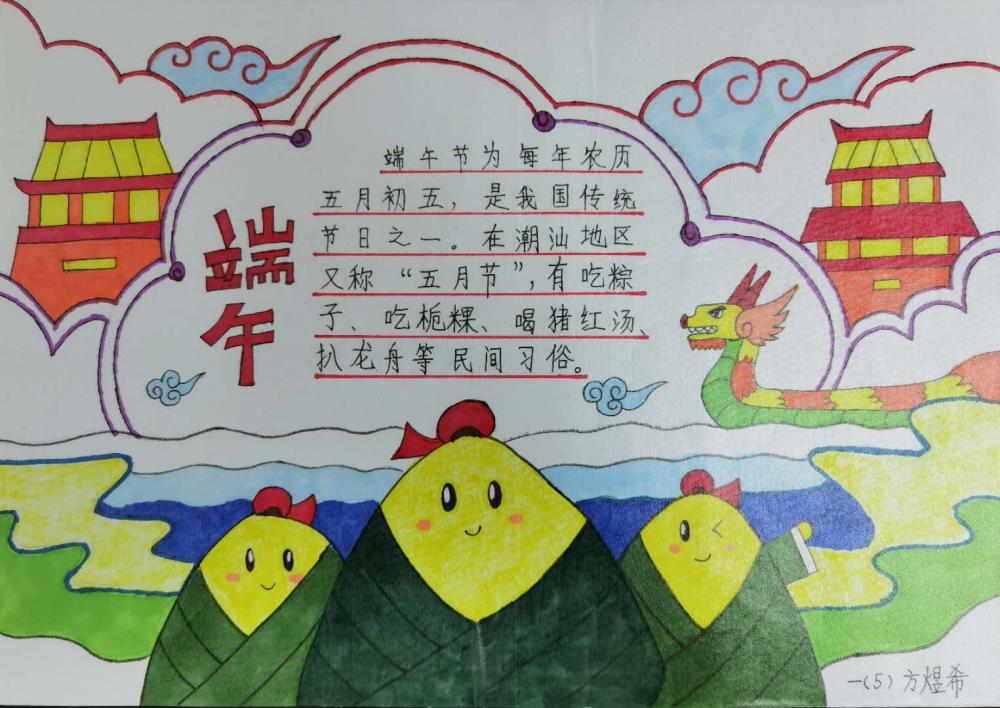 端午
端午节为每年农历
五月初五，是我国传统
节日之一。在潮汕地区
又称“五月节”，有吃粽
子、吃栀粿、喝猪红汤、
扒龙舟等民间习俗。
一(5)方煜希